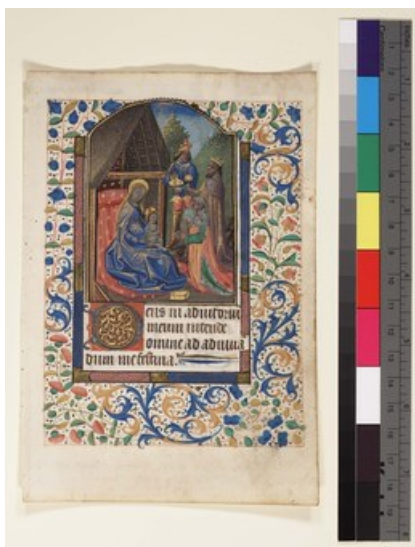 Deus in adiutoriu
meum intende
omine ad adiuua
dum me festina.